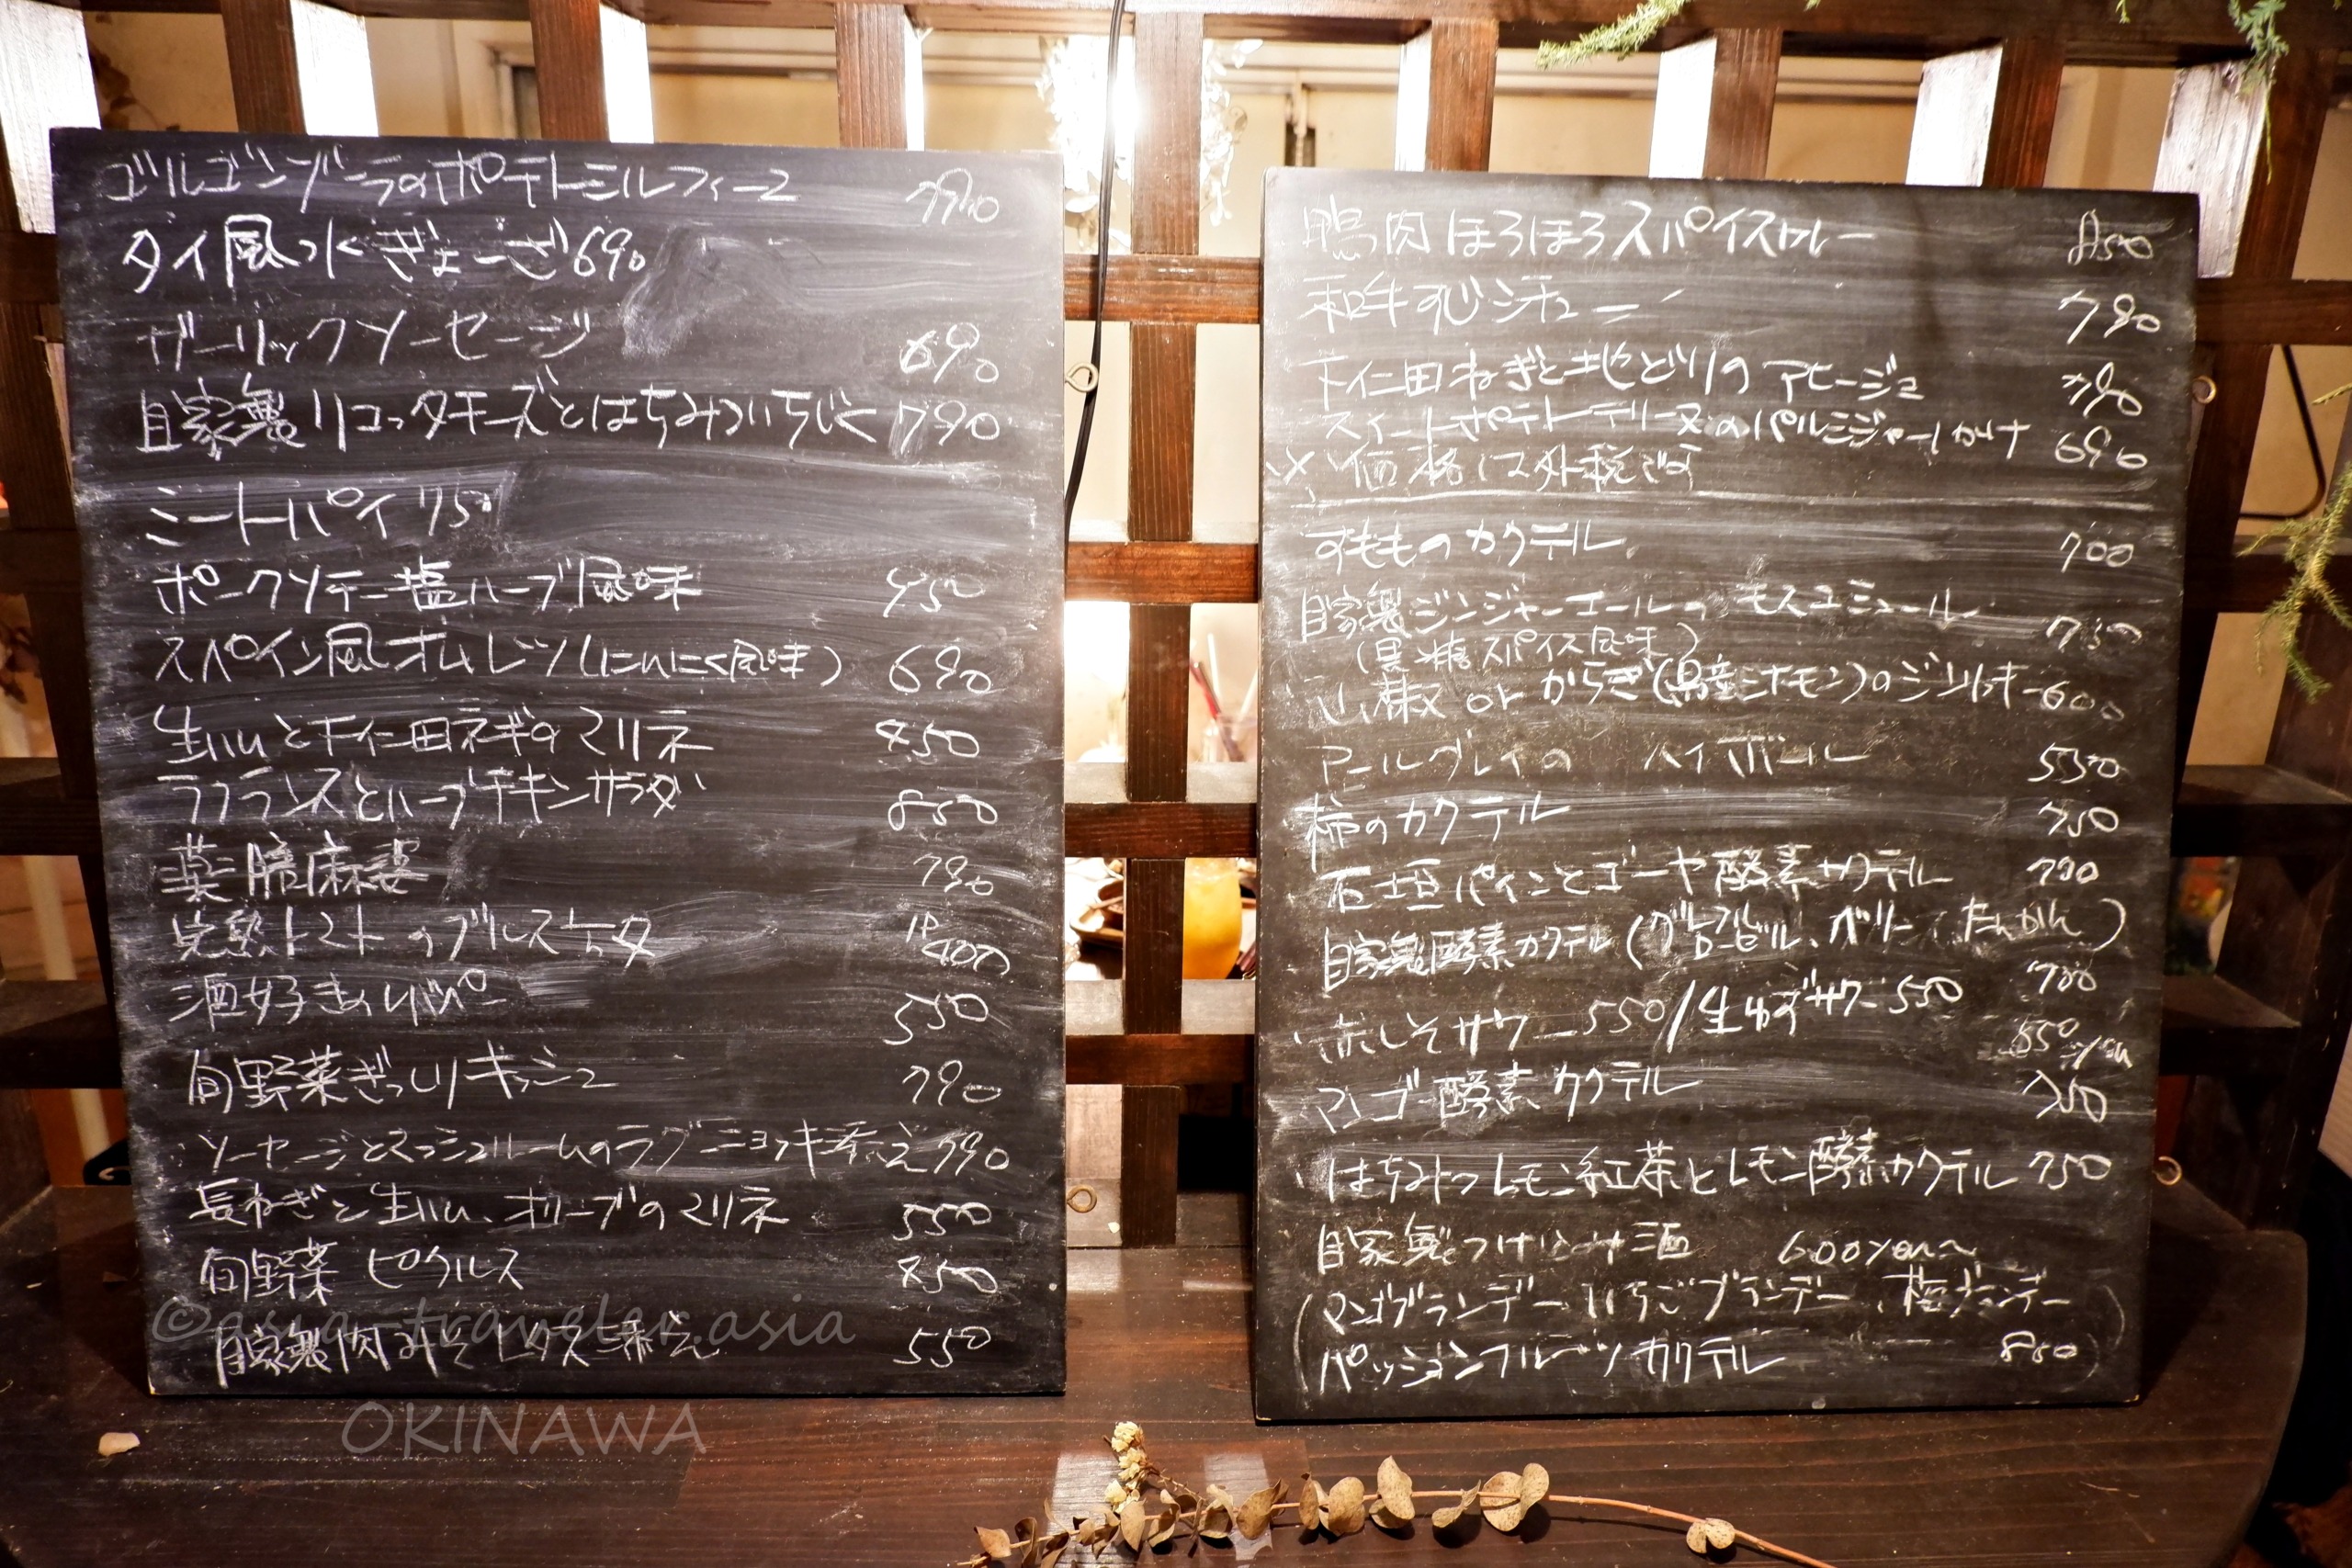 ゴルゴンゾーラのポテトミルフィーユ 790
タイ風水ぎょーざ 690
ガーリックソーセージ 690
自家製リコッタチーズとはちみついちじく 790
ミートパイ 750
ポークソテー塩ハーブ風味 950
スパイン風オムレツ(にんにく風味) 690
生ハムと下仁田ネギのマリネ 850
ラフランスとハーブチキンサラダ 850
薬膳麻婆 790
完熟トマトのブルスケッタ 1P 400
酒好きのレバパテ 550
旬野菜ぎっしりキッシュ 790
ソーセージとマッシュルームのラグーニョッキ添え 990
長ねぎと生ハム、オリーブのマリネ 550
旬野菜 ピクルス 450
自家製肉みそレタス添え 550
鴨肉ほろほろスパイスカレー 850
和牛すじシチュー 790
下仁田ねぎと地どりのアヒージョ 790
スイートポテトテリーヌのパルミジャーノがけ 690
※価格は外税です
すもものカクテル 700
自家製ジンジャーエールのモスコミュール 750
(黒糖スパイス風味)
山椒 or からぎ(県産シナモン)のジントニッキー 600
アールグレイの ハイボール 550
柿のカクテル 750
石垣パインとゴーヤ酵素カクテル 700
自家製酵素カクテル(グレープフルーツ ローゼル、ベリー、たんかん)
700
赤しそサワー 550/生ゆずサワー 550
550yen
マンゴー酵素カクテル 750
はちみつレモン紅茶とレモン酵素カクテル 750
自家製つけこみ酒 600yen〜
(マンゴブランデー、いちごブランデー、梅ブランデー
パッションフルーツカクテル 850)
©asia-traveler.asia
OKINAWA